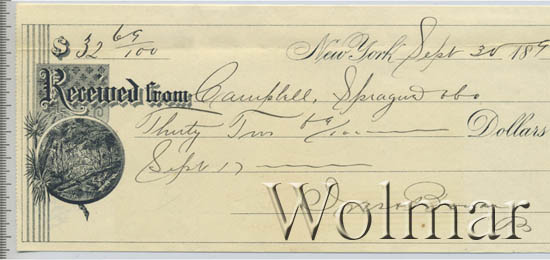 $ 32 69/100
New York Sept 30 189
Received from Campbell, Sprague
Thirty Two 69/100 Dollars
Sept 17
Wolmar